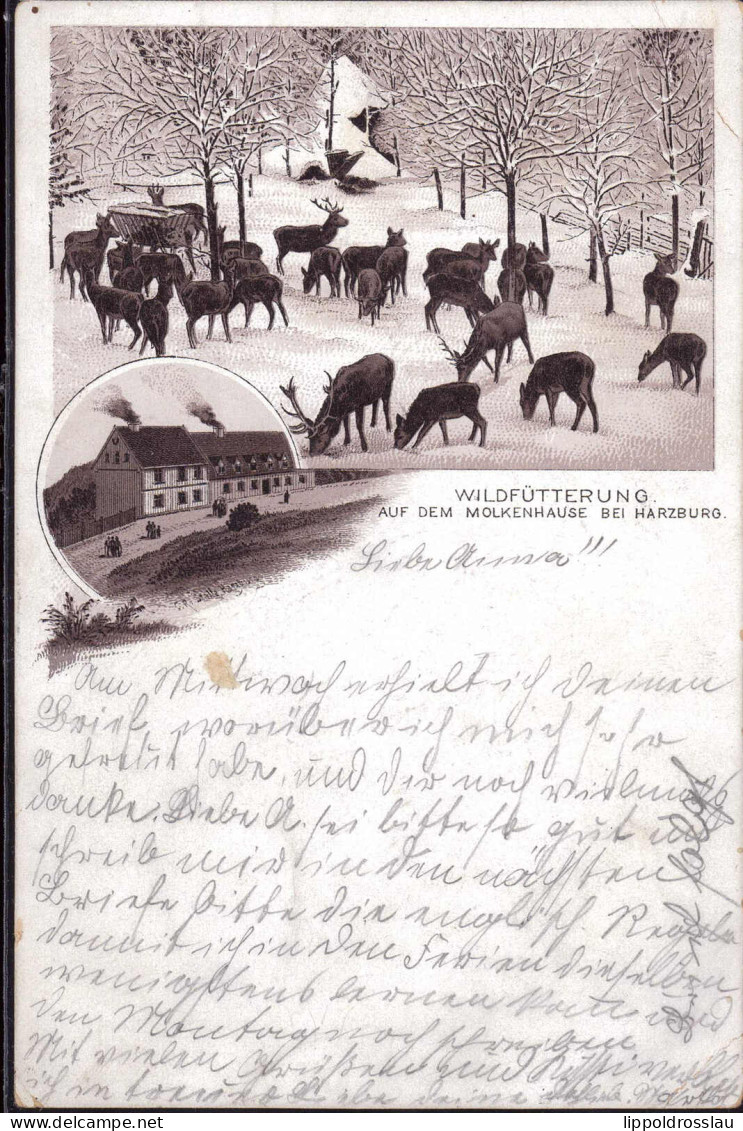 WILDFÜTTERUNG.
AUF DEM MOLKENHAUSE BEI HARZBURG.
Liebe Anna!!!
Am Mittwoch erhielt ich deinen
Brief, worüber ich mich sehr
gefreut habe, und der noch vielmals
danke. Liebe A. sei bitte so gut und
schreib mir in den nächsten
Briefe bitte die englisch Regeln
damit ich in den Ferien dieselben
wenigstens lernen kann und
den Montag noch schreiben
Mit vielen Grüßen und Küssen
ich in treuer Liebe deine
lippoldrosslau.de